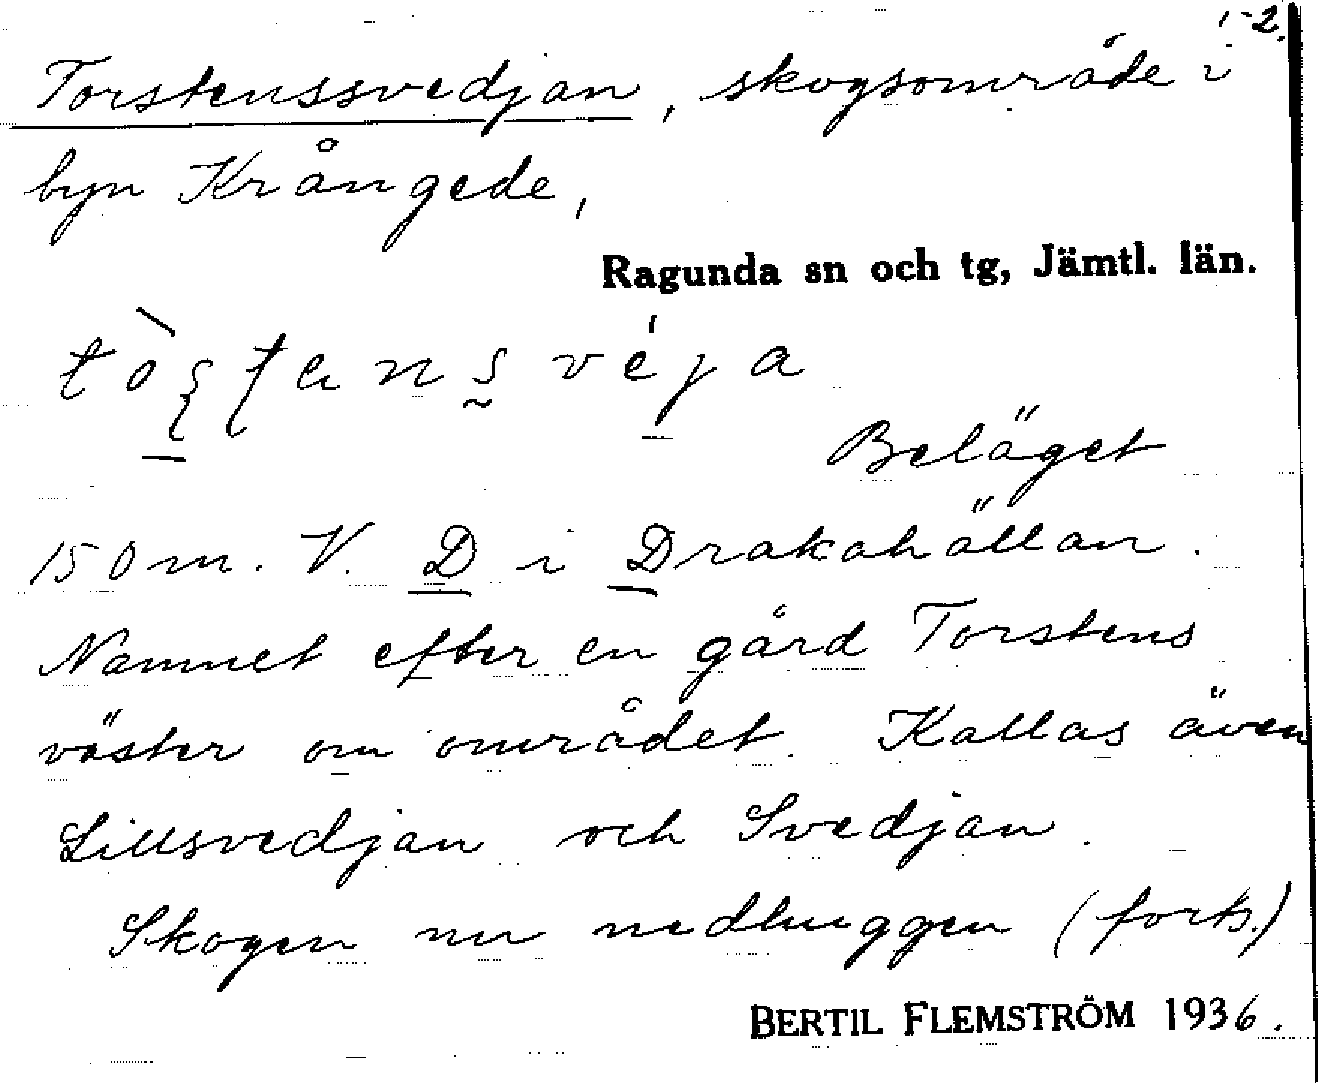 1-2.
Torstenssvedjan, skogsområde i
byn Krångede,
Ragunda sn och tg, Jämtl. län.
Beläget
150 m. V. D i Drakahällan.
Namnet efter en gård Torstens
väster om området. Kallas även
Lillsvedjan och Svedjan.
Skogen nu nedhuggen (forts.)
BERTIL FLEMSTRÖM 1936.